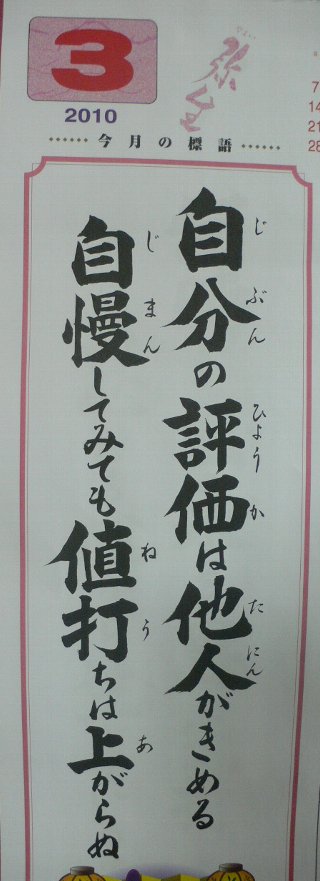 3
2010
やよい
弥生
……今月の標語……
7
14
21
28
自分の評価は他人がきめる
じぶん ひょうか たにん
自慢してみても値打ちは上がらぬ
じまん ねう あ